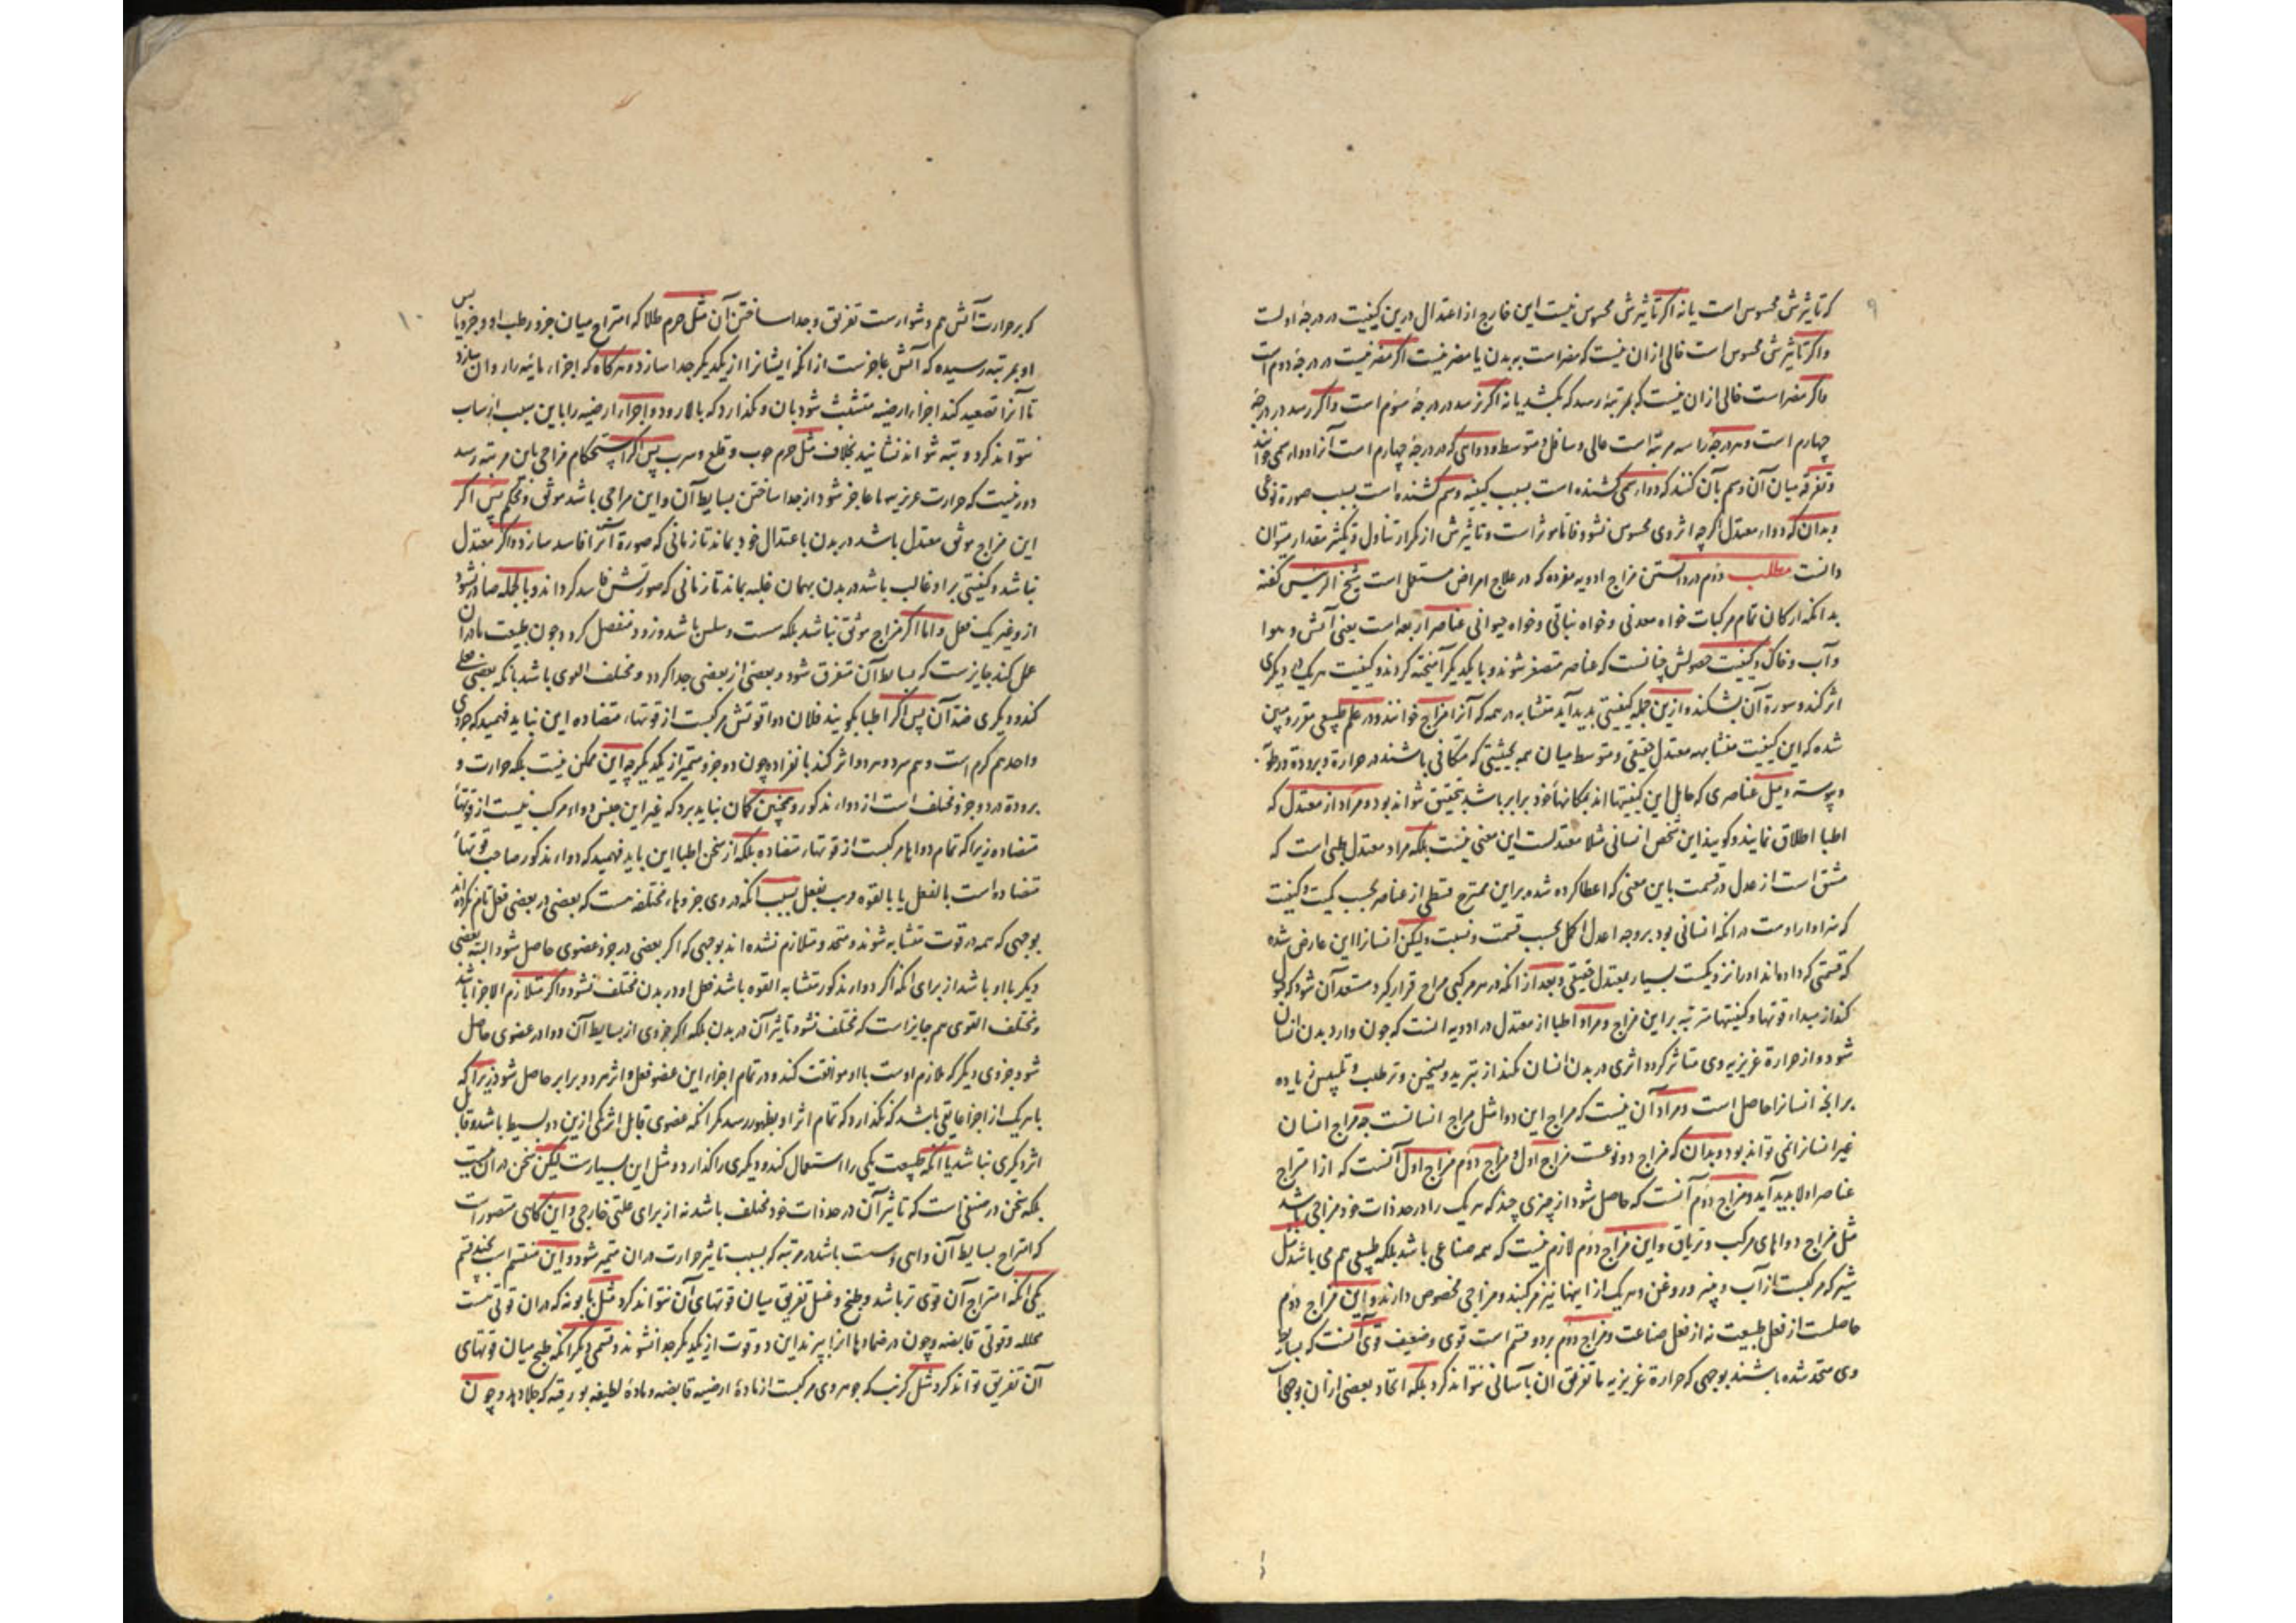 ۹
که تاثیرش محسوس است یا نه اکر تاثیرش محسوس نیست این خارج از اعتدال درین کیفیت در درجهٔ اولست
واکر تاثیرش محسوس است خالی ازان نیست که مضر است به بدن یا مضر نیست اکر مضر نیست در درجهٔ دوم است
واکر مضر است خالی ازان نیست که بمرتبهٔ رسد که بکشد یا نه اکر نرسد در درجهٔ سوم است واکر رسد در درجهٔ
چهارم است وهر درجه را سه مرتبه است عالی وسافل ومتوسط ودوائی که در درجهٔ چهارم است آنرا دواء سمی خوانند
وتفرقه میان آن وسم بآن کنند که دواء سمی کشنده است بسبب کیفیه وسم کشنده است بسبب صورة نوعی
وبدان که دواء معتدل اکرچه اثر وی محسوس نشود فاما موثر است وتاثیرش از تکرار تناول وتکثیر مقدار میتوان
دانست مطلب دوم در دانستن مزاج ادویه مفرده که در علاج امراض مستعمل است شیخ الرئیس کفته
بدانکه ارکان تمام مرکبات خواه معدنی وخواه نباتی وخواه حیوانی عناصر اربعه است یعنی آتش وهوا
وآب وخاک وکیفیت حصولش چنانست که عناصر متصغر شوند وبا یکدیکر آمیخته کردند وکیفیت هر یک در دیکری
اثر کند وسورة آن بشکند وازین جمله کیفیتی بدید آید متشابه در همه که آنرا مزاج خوانند ودر علم طبیعی مقرر ومبین
شده که این کیفیت متشابهه معتدل حقیقی ومتوسط میان همه بحیثیتی که متکافی باشند در حرارة وبرودة ورطوبة
ویبوسته ومیل عناصری که حامل این کیفیتها اند بمکانهاء خود برابر باشد تحقیق نتواند بود ومراد از معتدل که
اطبا اطلاق نمایند وکویند این شخص انسانی مثلا معتدلست این معنی نیست بلکه مراد معتدل طبی است که
مشتق است از عدل در قسمت باین معنی که اعطا کرده شده بر این ممتزج قسطی از عناصر بحسب کمیت وکیفیت
که سزاوار اوست در انکه انسانی بود بر وجه اعدل اکمل بحسب قسمت ونسبت ولیکن انسانرا این عارض شده
که قسمتی که داده‌اند اورا نزدیکست بسیار بمعتدل حقیقی وبعد از انکه در هر مرکبی مزاج قرار کیرد مستعد آن شود که قبول
کند از مبداء قوتها وکیفیتها مترتبه بر این مزاج ومراد اطبا از معتدل در ادویه انست که چون وارد بدن انسان
شود واز حرارة غریزیه وی متاثر کردد اثری در بدن انسان نکند از تبرید وتسخین وترطیب وتیبیس زیاده
بر انچه انسانرا حاصل است ومراد آن نیست که مزاج این دوا مثل مزاج انسانست چه مزاج انسان
غیر انسانرا نمی تواند بود وبدان که مزاج دو نوعست مزاج اول ومزاج دوم مزاج اول آنست که از امتزاج
عناصر اولا بدید آید ومزاج دوم آنست که حاصل شود از چیزی چند که هر یک را در حد ذات خود مزاجی باشد
مثل مزاج دواهای مرکب وتریاق واین مزاج دوم لازم نیست که همه صناعی باشد بلکه طبیعی هم می باشد مثل
شیر که مرکبست از آب وپنیر وروغن وهر یک از اینها نیز مرکبند ومزاجی مخصوص دارند واین مزاج دوم
حاصلست از فعل طبیعت نه از فعل صناعت ومزاج دوم بر دو قسم است قوی وضعیف قوی آنست که بسایط
وی متحد شده باشند بوجهی که حرارة غریزیه ما تفریق ان بآسانی نتواند کرد بلکه اتحاد بعضی ازان بوجهی است
۱۰
که بر حرارت آتش هم دشوارست تفریق وجدا ساختن آن مثل جرم طلا که امتزاج میان جزو رطب او وجزو یابس
او بمرتبه رسیده که آتش عاجزست از انکه ایشانرا از یکدیکر جدا سازد وهرکاه که اجزاء مائیه را روان سازد
تا آنرا تصعید کند اجزاء ارضیه متشبث شود بان ونکذارد که بالا رود واجزاء ارضیه را باین سبب ارساب
نتواند کرد وته نتواند نشانید بخلاف مثل جرم چوب وقلع وسرب پس اکر استحکام مزاجی باین مرتبه رسد
دور نیست که حرارت غریزیه ما عاجز شود از جدا ساختن بسایط آن واین مزاجی باشد موثق ومحکم پس اکر
این مزاج موثق معتدل باشد در بدن باعتدال خود بماند تا زمانی که صورة آنرا فاسد سازد واکر معتدل
نباشد وکیفیتی بر او غالب باشد در بدن بهمان غلبه بماند تا زمانی که صورتش فاسد کرداند وبالجمله صادر نشود
ازو غیر یک فعل واما اکر مزاج موثق نباشد بلکه سست وسلس باشد وزود منفصل کردد چون طبیعت ما دران
عمل کند جایزست که بسایط آن متفرق شود وبعضی از بعضی جدا کردد ومختلف القوی باشد بانکه بعضی فعلی
کند ودیکری ضد آن پس اکر اطبا بکویند فلان دوا قوتش مرکبست از قوتهاء متضاده این نباید فهمید که جزوی
واحد هم کرم است وهم سرد وهر دو اثر کند بانفراده چون دو جزو متمیز از یکدیکر چه این ممکن نیست بلکه حرارت و
برودة در دو جزو مختلف است از دواء مذکور وهمچنین کمان نباید برد که غیر این جنس دواء مرکب نیست از قوتهاء
متضاده زیرا که تمام دواها مرکبست از قوتهاء متضاده بلکه از سخن اطبا این باید فهمید که دواء مذکور صاحب قوتهاء
متضاده است بالفعل یا بالقوه قریب بفعل بسبب انکه در وی جزوهاء مختلفه هست که بعضی در بعضی فعل تام نکرده اند
بوجهی که همه در قوت متشابه شوند ومتحد ومتلازم نشده اند بوجهی که اکر بعضی در جزو عضوی حاصل شود البته بعضی
دیکر با او باشد از برای انکه اکر دواء مذکور متشابه القوه باشد فعل او در بدن مختلف نشود واکر متلازم الاجزا باشد
ومختلف القوی هم جایز است که مختلف نشود تاثیر آن در بدن بلکه اکر جزوی از بسایط آن دوا در عضوی حاصل
شود جزوی دیکر که ملازم اوست با او موافقت کند ودر تمام اجزاء این عضو فعل واثر هر دو برابر حاصل شود زیرا که
با هر یک از اجزا عایقی باشد که نکذارد که تمام اثر او بظهور رسد مکر انکه عضوی قابل اثر یکی ازین دو بسیط باشد وقابل
اثر دیکری نباشد یا انکه طبیعت یکی را استعمال کند ودیکری را کذارد ومثل این بسیارست لیکن سخن در ان نیست
بلکه سخن در صنفی است که تاثیر آن در حد ذات خود مختلف باشد نه از برای علتی خارجی واین کاهی متصور است
که امتزاج بسایط آن واهی وسست باشد بمرتبه که بسبب تاثیر حرارت دران متمیز شود واین منقسم است بچند قسم
یکی انکه امتزاج آن قوی تر باشد وطبخ وغسل تفریق میان قوتهای آن نتواند کرد مثل بابونه که دران قوتی هست
محلله وقوتی قابضه وچون در ضمادها انرا بپزند این دو قوت از یکدیکر جدا نشوند وقسمی دیکر انکه طبخ میان قوتهای
آن تفریق تواند کرد مثل کرنب که جوهر وی مرکبست از مادهٔ ارضیه قابضه ومادهٔ لطیفه بورقیه که جلا دهد وچون